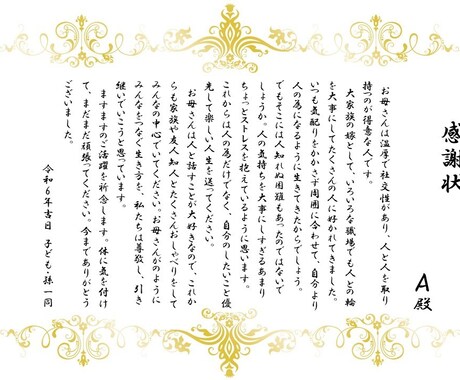 感謝状
A殿
お母さんは温厚で社交性があり、人と人を取り
持つのが得意な人です。
大家族の嫁として、いろいろな職場でも人との輪
を大事にしてたくさんの人に好かれてきました。
いつも気配りをかかさず周囲に合わせて、自分より
人の為になるように生きてきたからでしょう。
でもそこには人知れぬ困難もあったのではないで
しょうか。人の気持ちを大事にしすぎるあまり
ちょっとストレスを抱えているように思います。
これからは人の為だけでなく、自分のしたいこと優
先して楽しい人生を送ってください。
お母さんは人と話すことが大好きなので、これか
らも家族や友人知人とたくさんおしゃべりをして
みんなの中心でいてください。お母さんのように
みんなをつなぐ生き方を、私たちは尊敬し、引き
継いでいこうと思っています。
ますますのご活躍を祈念します。体に気を付け
て、まだまだ頑張ってください。今までありがとう
ございました。
令和6年吉日 子ども・孫一同